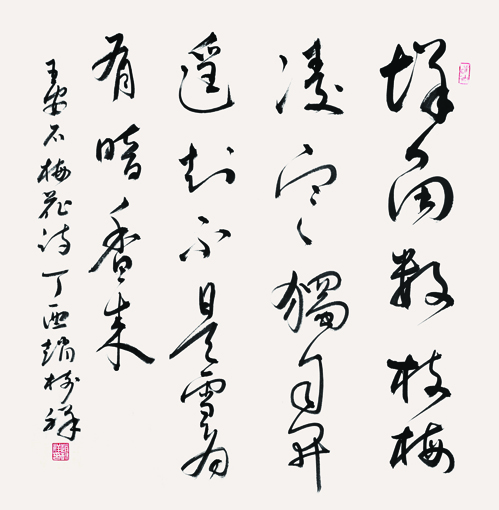 墙角数枝梅
凌寒獨自开
遥知不是雪为
有暗香来
王安石梅花诗丁酉趙祥